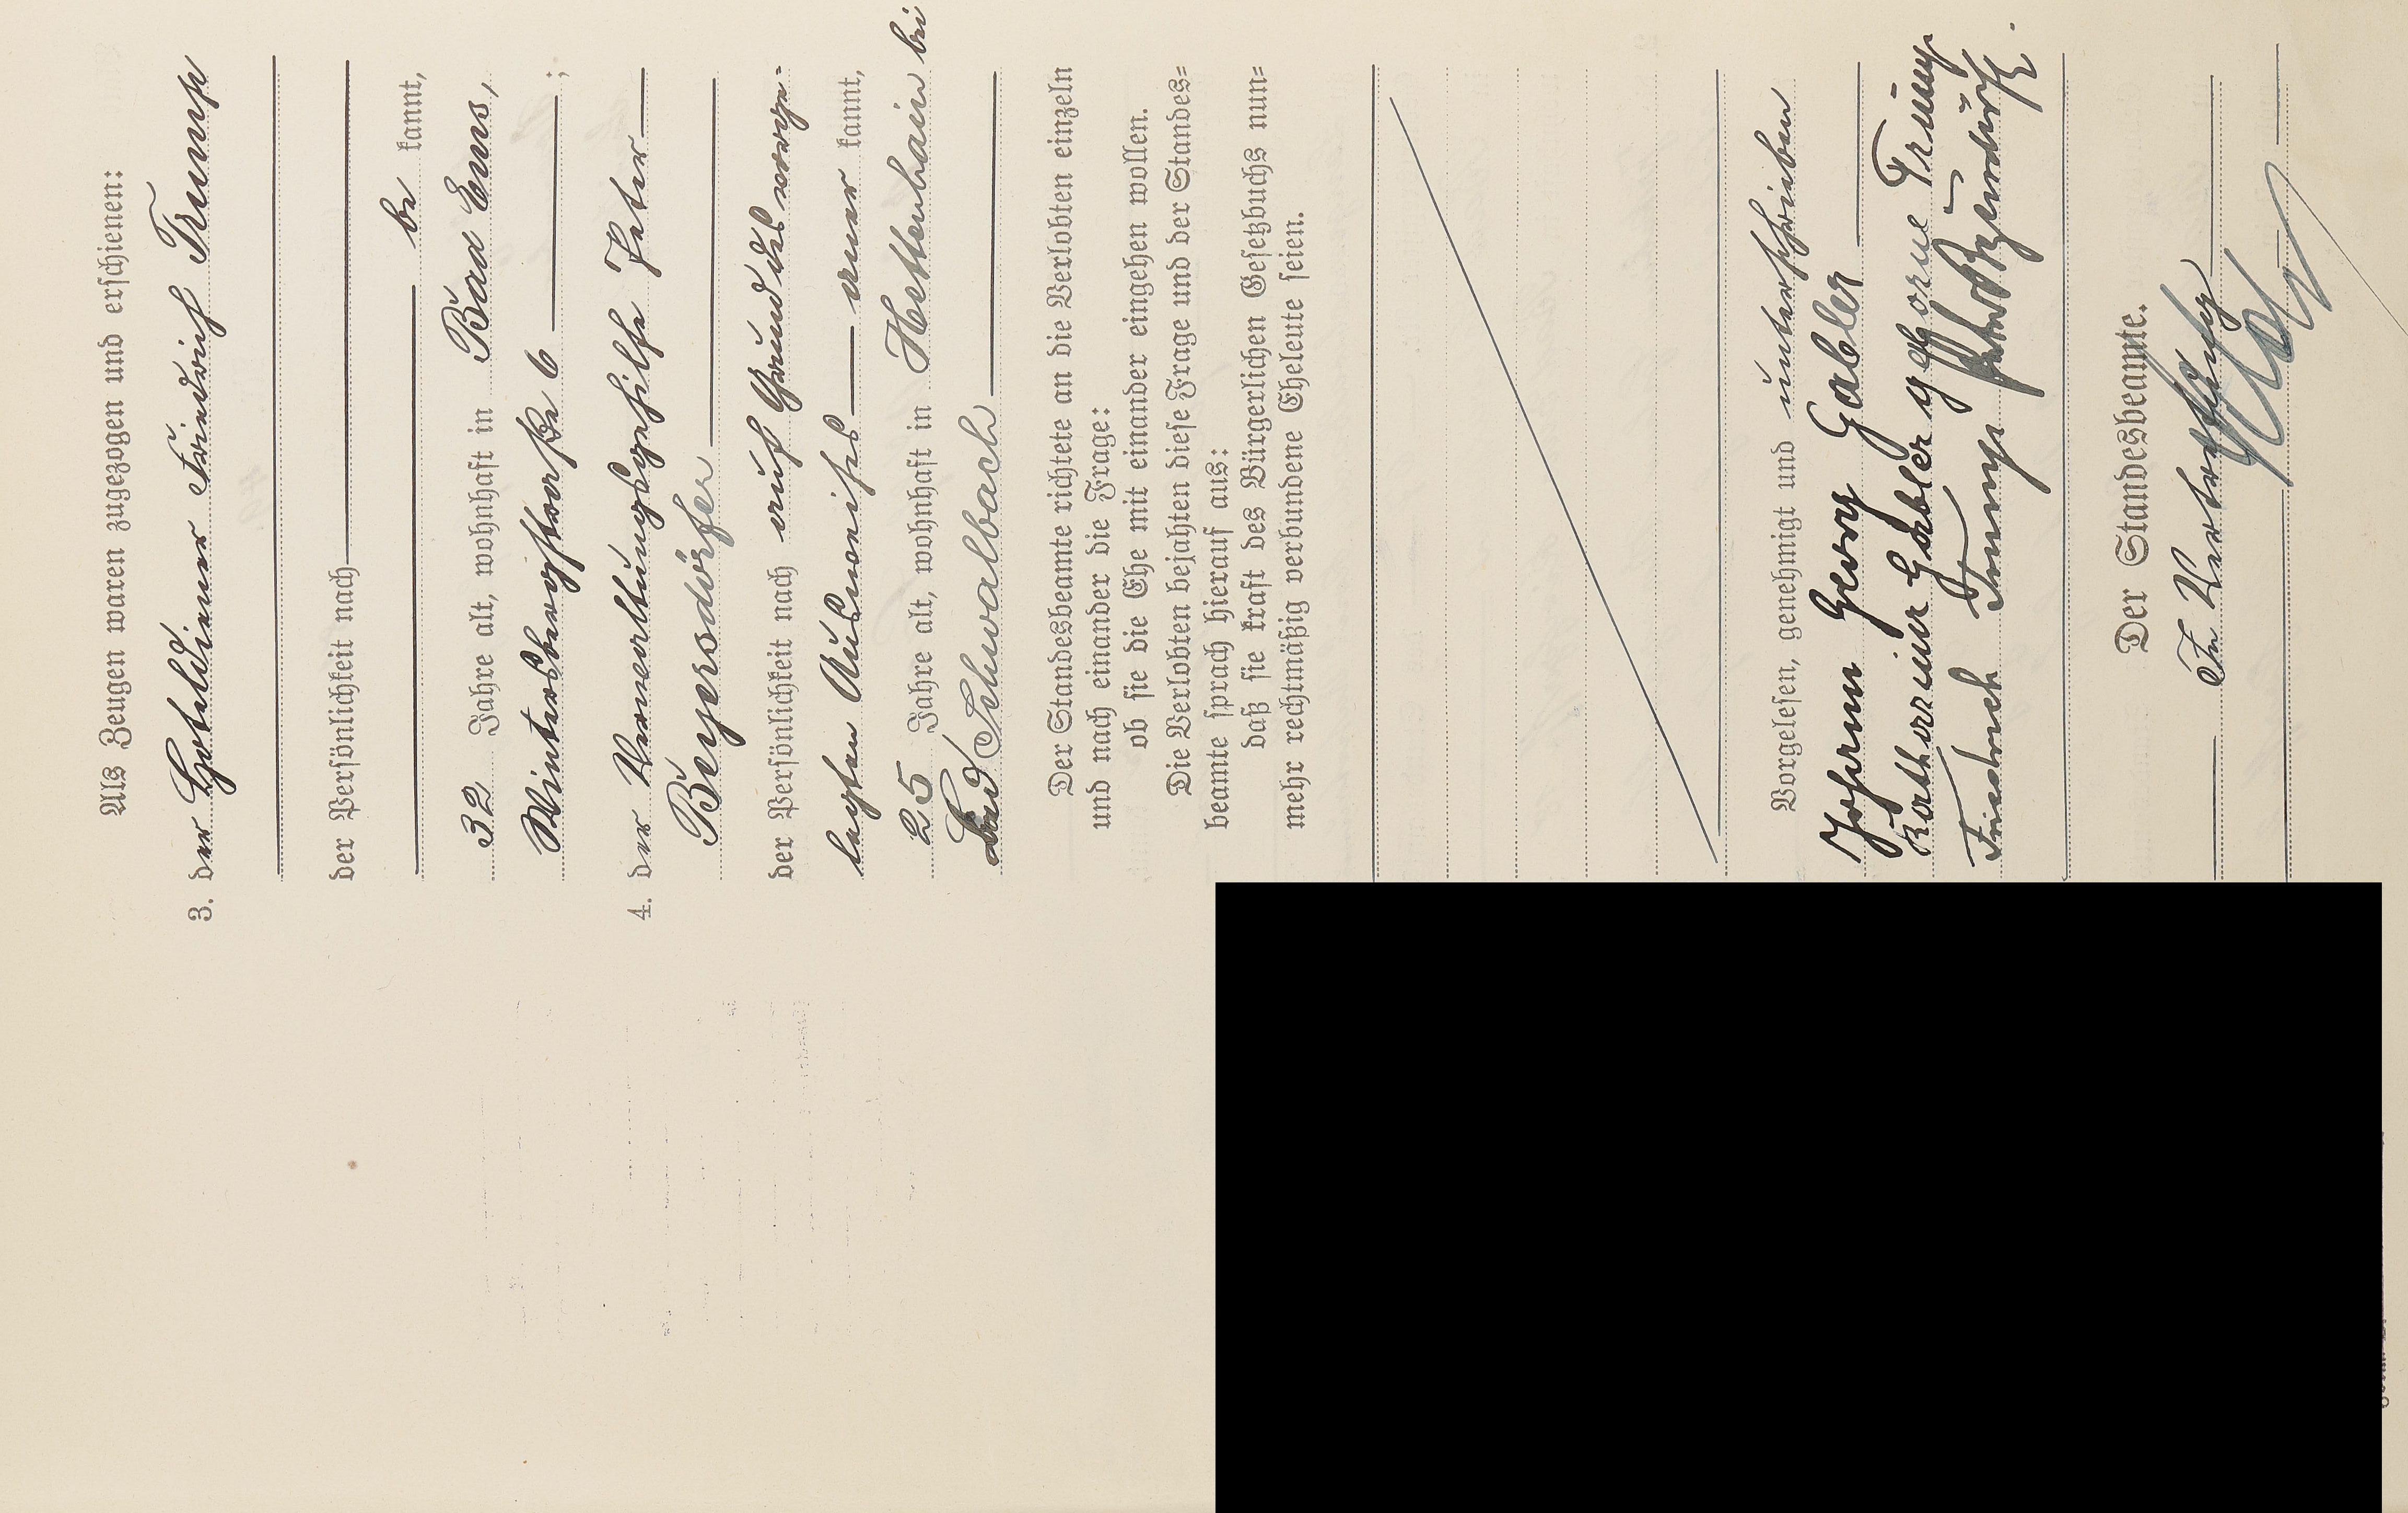 Als Zeugen waren zugezogen und erschienen:
3. der Hoteldiener Friedrich Trump
der Persönlichkeit nach
be kannt,
32 Jahre alt, wohnhaft in Bad Ems,
Wintersbergstraße 6 ;
4. der Verwaltungsgehilfe Peter
Beyersdörfer
der Persönlichkeit nach auf Grund des vorge-
legten Ausweises aner kannt,
25 Jahre alt, wohnhaft in Hettenhain bei
Bad Schwalbach
Der Standesbeamte richtete an die Verlobten einzeln
und nach einander die Frage:
ob sie die Ehe mit einander eingehen wollen.
Die Verlobten bejahten diese Frage und der Standes=
beamte sprach hierauf aus:
daß sie kraft des Bürgerlichen Gesetzbuchs nun=
mehr rechtmäßig verbundene Eheleute seien.
Vorgelesen, genehmigt und unterschrieben
Johann Georg Gabler
Katharina Gabler geborne Trump
Friedrich Trump Peter Beyersdörfer
Der Standesbeamte.
In Vertretung